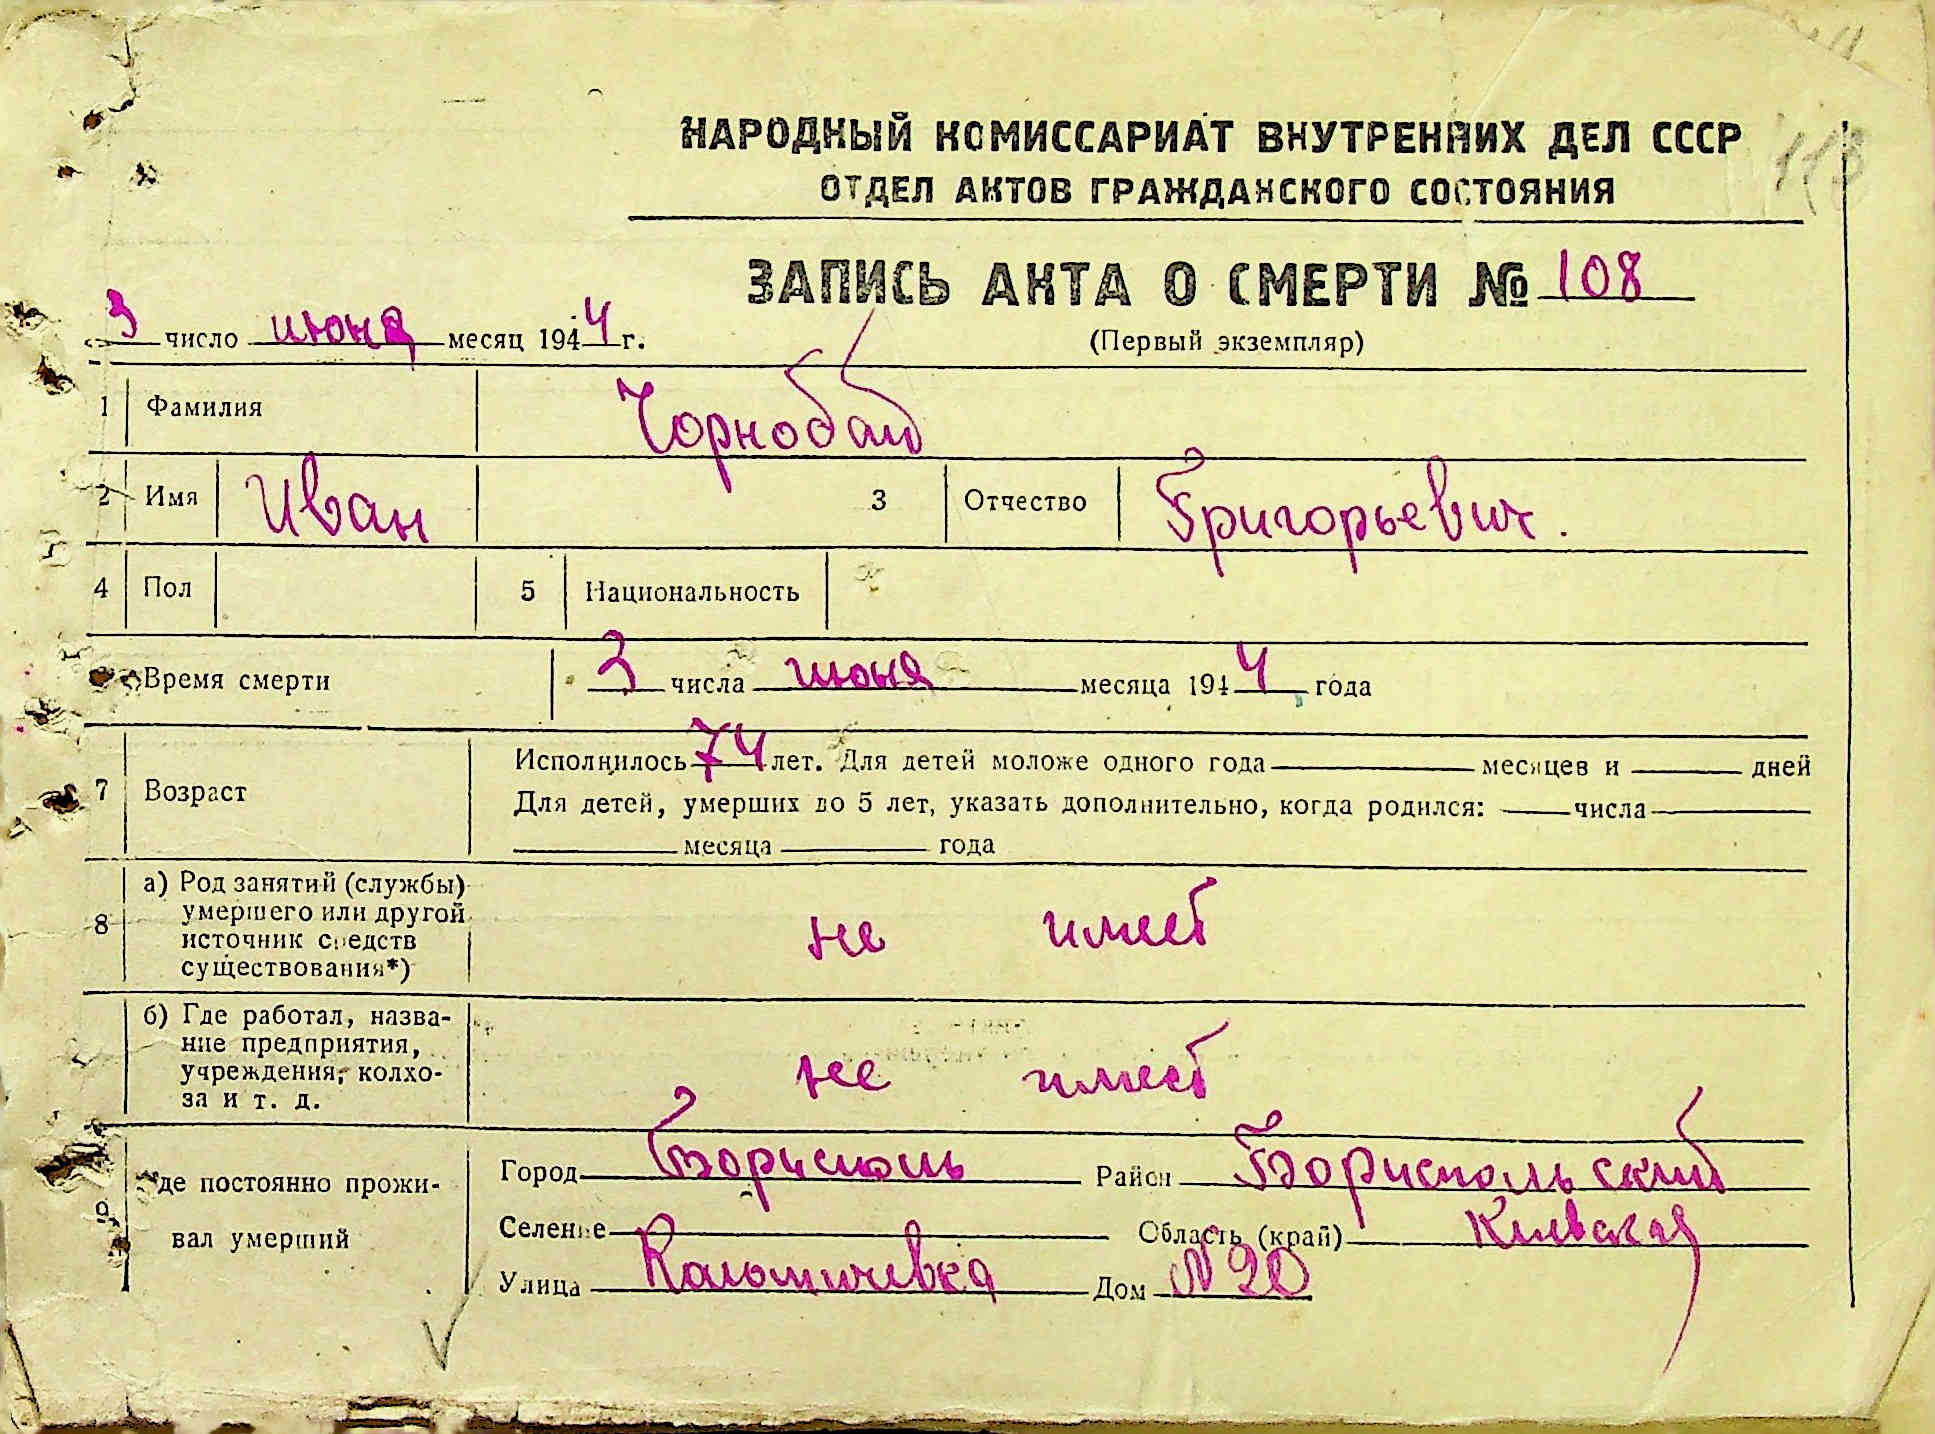 118
НАРОДНЫЙ КОМИССАРИАТ ВНУТРЕННИХ ДЕЛ СССР
ОТДЕЛ АКТОВ ГРАЖДАНСКОГО СОСТОЯНИЯ
ЗАПИСЬ АКТА О СМЕРТИ № 108
3 число июня месяц 1944 г.
(Первый экземпляр)
1 Фамилия Чорнобай
2 Имя Иван 3 Отчество Григорьевич.
4 Пол 5 Национальность
Время смерти 3 числа июня месяца 1944 года
7 Возраст
Исполнилось 74 лет. Для детей моложе одного года месяцев и дней
Для детей, умерших до 5 лет, указать дополнительно, когда родился: числа
месяца года
8 а) Род занятий (службы)
умершего или другой
источник средств
существования*)
не имеет
б) Где работал, назва-
ние предприятия,
учреждения, колхо-
за и т. д.
не имеет
9 Где постоянно прожи-
вал умерший
Город Борисполь Район Бориспольский
Селение Область (край) Киевская
Улица Дом №20